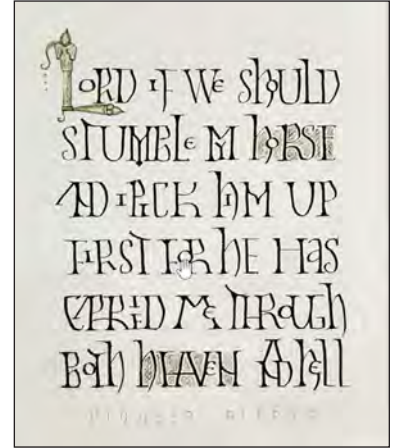 LORD IF WE ShOULD
STUMBLE MY hORSE
AND I PICK hIM UP
FIRST FOR hE HAS
CARRIED ME ThROUGh
BOTh hEAVEN AND hELL